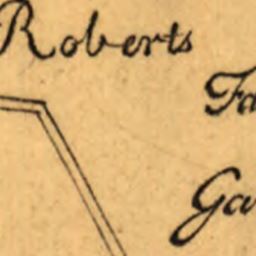 Roberts
Fa
Ga